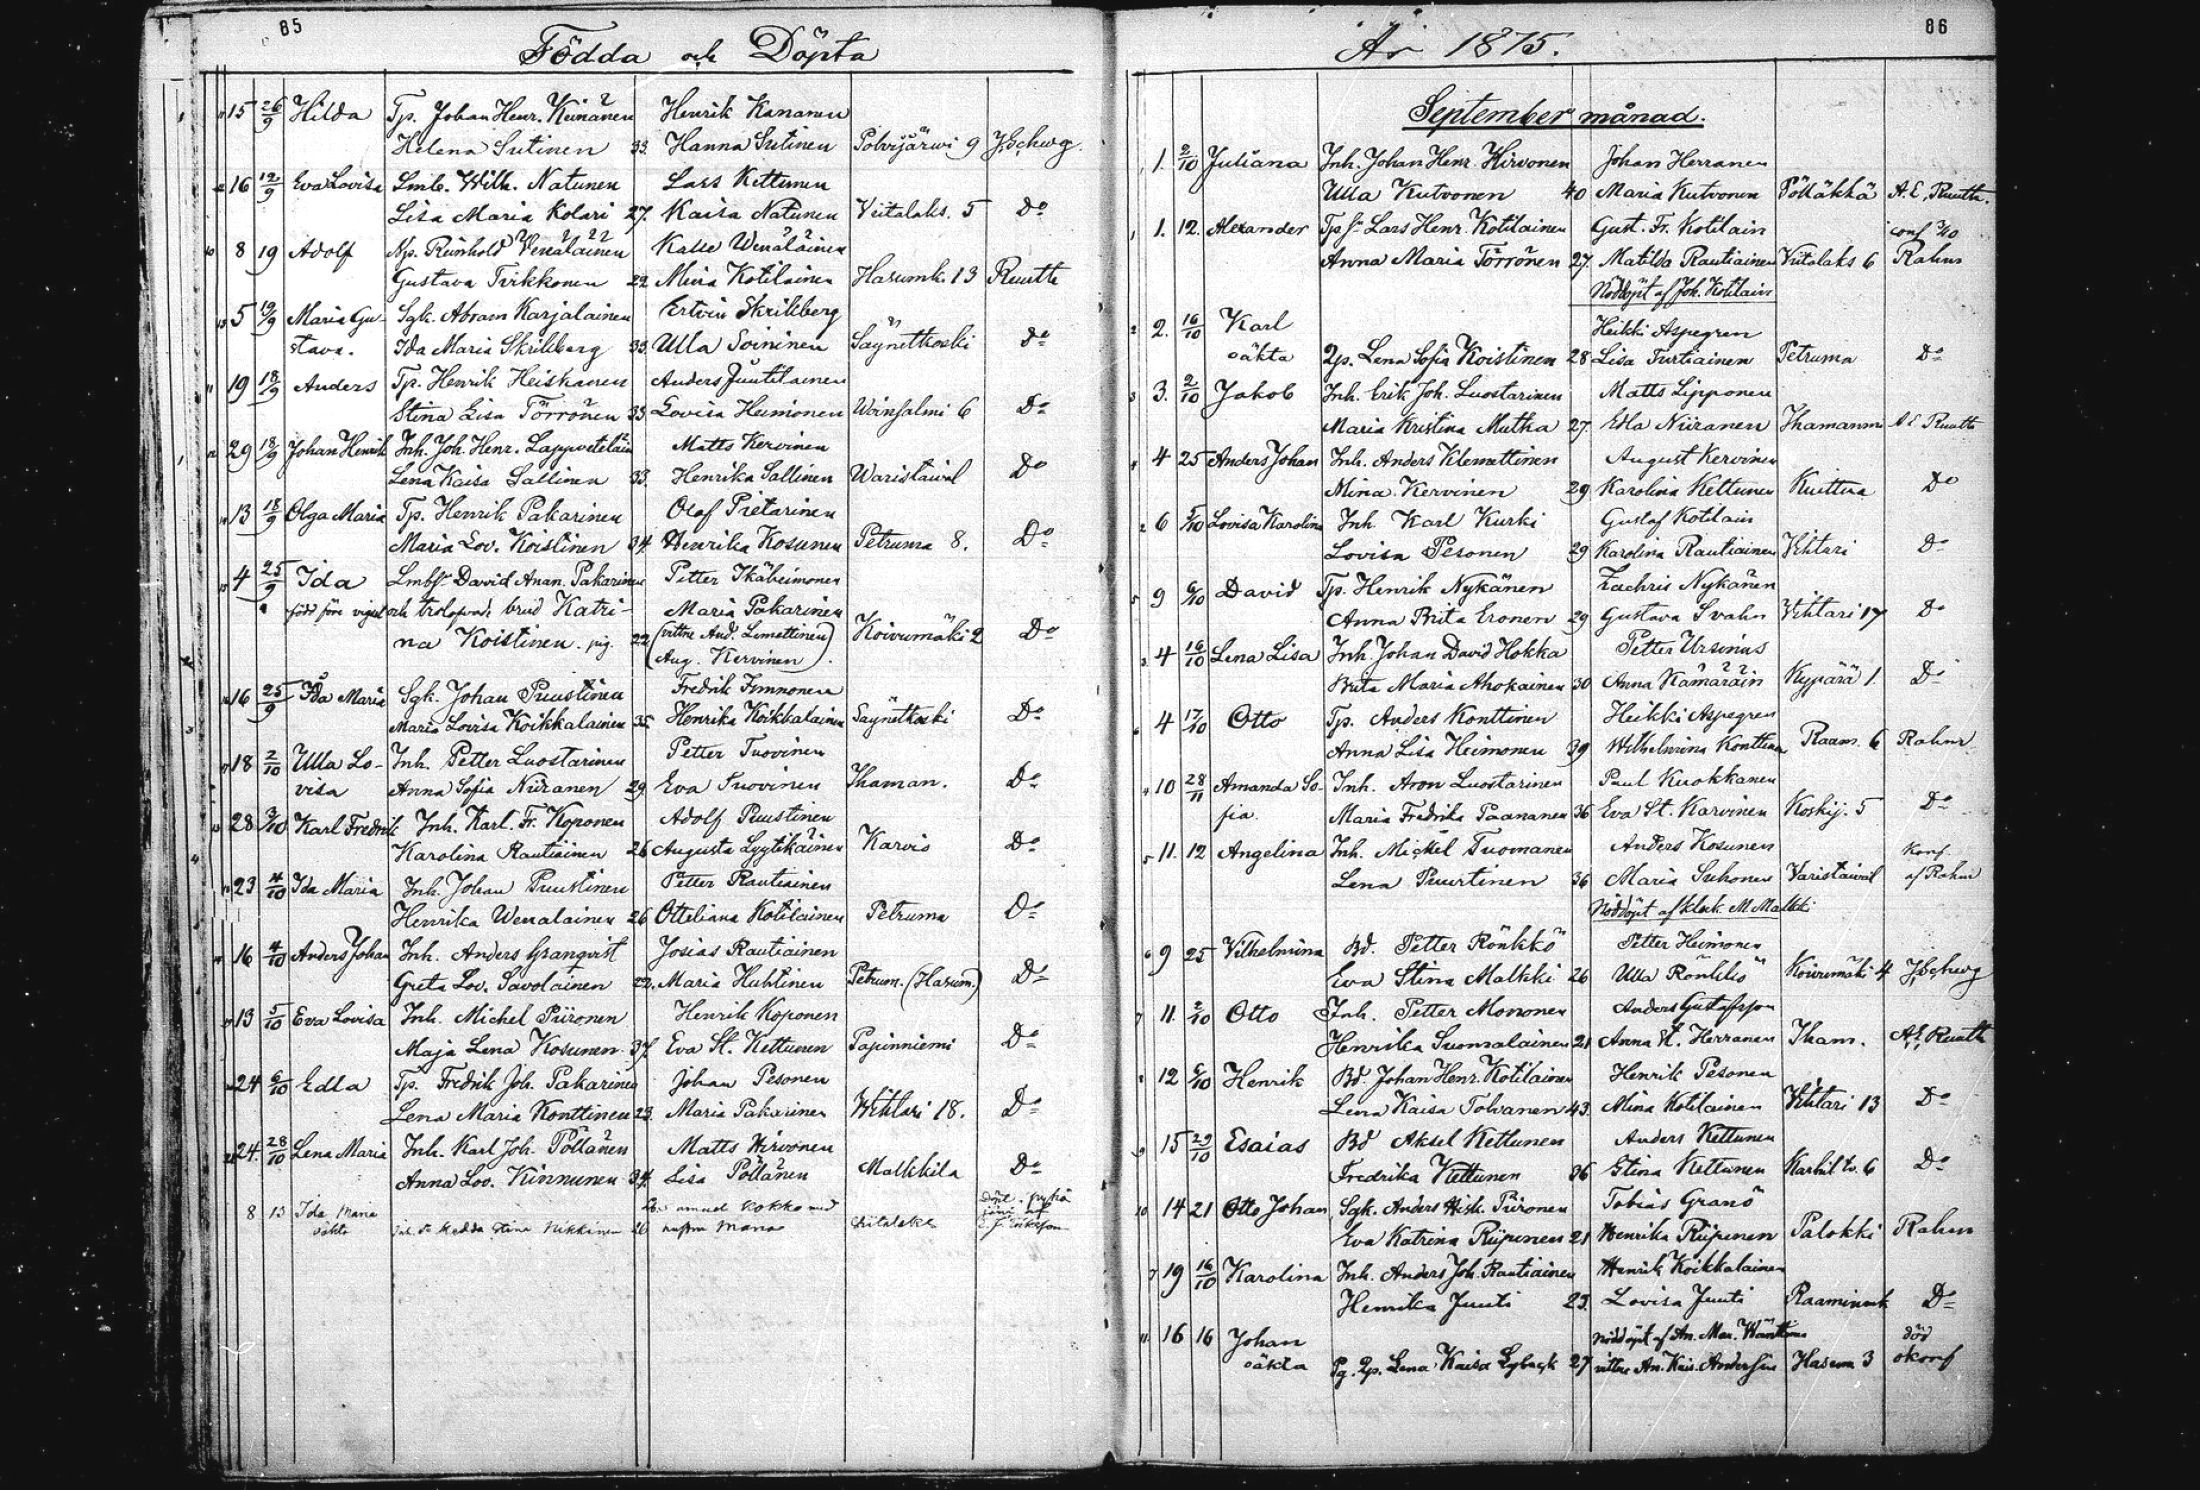 85
Födda och Döpta
15 26/9 Hilda Tp. Johan Henr. Keinänen Henrik Kananen
Helena Sutinen 33. Hanna Sutinen Polvijärwi 9 J. Schwg.
16 12/9 Eva Lovisa Smb. Wilh. Natunen Lars Kettunen
Lisa Maria Kolari 27. Kaisa Natunen Viitalaks. 5 Do
8 19 Adolf Np. Reinhold Venäläinen Kalle Wenäläinen
Gustava Tirkkonen 22 Mina Kotilainen Hasumk. 13 Ruuth
5 19/9 Maria Gu- Sgk. Abram Karjalainen Ertvin Skrillberg
stava. Ida Maria Skrillberg 33. Ulla Soininen Säynetkoski Do
19 18/9 Anders Tp. Henrik Heiskanen Anders Juutilainen
Stina Lisa Törrönen 33 Lovisa Heimonen Woinsalmi 6 Do
29 18/9 Johan Henrik Inh. Joh. Henr. Lappveteläin Matts Kervinen
Lena Kaisa Sallinen 33. Henrika Sallinen Waristaival Do
13 18/9 Olga Maria Tp. Henrik Pakarinen Olof Pietarinen
Maria Lov. Koistinen 34. Henrika Kosunen Petruma 8. Do
4 25/9 Ida Lmbs. David Anan. Pakarinen Petter Ikäheimonen
född före vigsel och trolofvad. brud Katri- Maria Pakarinen
na Koistinen. pig. 22 (vittne And. Limettinen) Koivumäki 2 Do
Aug. Kervinen).
16 25/9 Ida Maria Sgk. Johan Puustinen Fredrik Immonen
Maria Lovisa Koikkalainen 35. Henrika Koikkalainen Säynetkoski Do
18 2/10 Ulla Lo- Inh. Petter Luostarinen Petter Tuovinen
visa Anna Sofia Niiranen 29. Eva Tuovinen Ihaman. Do
28 3/10 Karl Fredrik Inh. Karl. Fr. Koponen Adolf Puustinen
Karolina Rautiainen 26 Augusta Lyytikäinen Karvio Do
23 4/10 Ida Maria Inh. Johan Puustinen Petter Rautiainen
Henrika Wenalainen 26 Otteliana Kotilainen Petruma Do
16 4/10 Anders Johan Inh. Anders Granqvist Josias Rautiainen
Greta Lov. Savolainen 22. Maria Huhtinen Petrum. (Hasum.) Do
13 5/10 Eva Lovisa Inh. Michel Piironen Henrik Koponen
Maja Lena Kosunen. 37. Eva St. Kettunen Papinniemi Do
24 6/10 Edla Tp. Fredrik Joh. Pakarinen Johan Pesonen
Lena Maria Konttinen 23. Maria Pakarinen Wihtari 18. Do
24. 28/10 Lena Maria Inh. Karl Joh. Pöllänen Matts Hirvonen
Anna Lov. Kinnunen 34. Lisa Pöllänen Malkkila Do
8 13 Ida Maria Samuel Kokko med
oäkta Hedda Stina Nikkinen 26 hustru Maria Viitalaks
86
År 1875.
September månad.
1. 2/10 Juliana Inh. Johan Henr. Hirvonen Johan Herranen
Ulla Kutvonen 40 Maria Kutvonen Pölläkkä A. E. Ruuth.
1. 12. Alexander Tp. Sn Lars Henr. Kotilainen Gust. Fr. Kotilain conf
Anna Maria Törrönen 27. Matilda Rautiainen Viitalaks 6 Rahm
Nöddöpt af Joh. Kotilain
2. 16/10 Karl Heikki Aspegren
oäkta Qp. Lena Sofia Koistinen 28 Lisa Turtiainen Petruma Do
3. 2/10 Jakob Inh. Erik Joh. Luostarinen Matts Lipponen
Maria Kristina Mutka 27. Edla Niiranen Ihamanni A E Ruuth
4 25 Anders Johan Inh. Anders Klemettinen August Kervinen
Mina Kervinen 29 Karolina Kettunen Kuittua Do
6 5/10 Lovisa Karolina Inh. Karl Kurki Gustaf Kotilain
Lovisa Pesonen 29 Karolina Rautiainen Vihtari Do
9 6/10 David Tp. Henrik Nykänen Zachris Nykänen
Anna Brita Eronen 29 Gustava Svahn Vihtari 17 Do
4 16/10 Lena Lisa Inh. Johan David Hokka Petter Ursinus
Brita Maria Ahokainen 30 Anna Kämäräin Kypärä 1. Do
4 17/10 Otto Tp. Anders Konttinen Heikki Aspegren
Anna Lisa Heimonen 39 Wilhelmina Konttinen Raam. 6 Rahm
10 28/11 Amanda So- Inh. Aron Luostarinen Paul Kuokkanen
fia. Maria Fredrika Paananen 36 Eva St. Karvinen Koskij. 5 Do
11. 12 Angelina Inh. Mickel Tuomanen Anders Kosunen Konf.
Lena Puurtinen 36 Maria Suhonen Varistaival af Rahm
Nöddöpt af klock. M Malkki
9 25 Vilhelmina Bd. Petter Rönkkö Petter Heimonen
Eva Stina Malkki 26 Ulla Rönkkö Koivumäki 4 J. Schwg
11. 2/10 Otto Inh. Petter Mononen Anders Gustafsson
Henrika Suomalainen 21 Anna St. Herranen Iham. A. E. Ruuth
12 6/10 Henrik Bd. Johan Henr. Kotilainen Henrik Pesonen
Lena Kaisa Tolvanen 43. Mina Kotilainen Vihtari 13 Do
15 29/10 Esaias Bd Aksel Kettunen Anders Kettunen
Fredrika Kettunen 36 Stina Kettunen 6 Do
14 21 Otto Johan Sgk. Anders Hisk. Piironen Tobias Granö
Eva Katrina Riipinen 21 Henrika Riipinen Palokki Rahm
19 16/10 Karolina Inh. Anders Joh. Rautiainen Henrik Koikkalainen
Henrika Juuti 23. Lovisa Juuti Raaminmk Do
16 16 Johan Nöddöpt af An. Mar. död
oäkta Pg. Qp. Lena Kaisa Lybeck 27 vittne An. Kais. Hasum 3 okonf